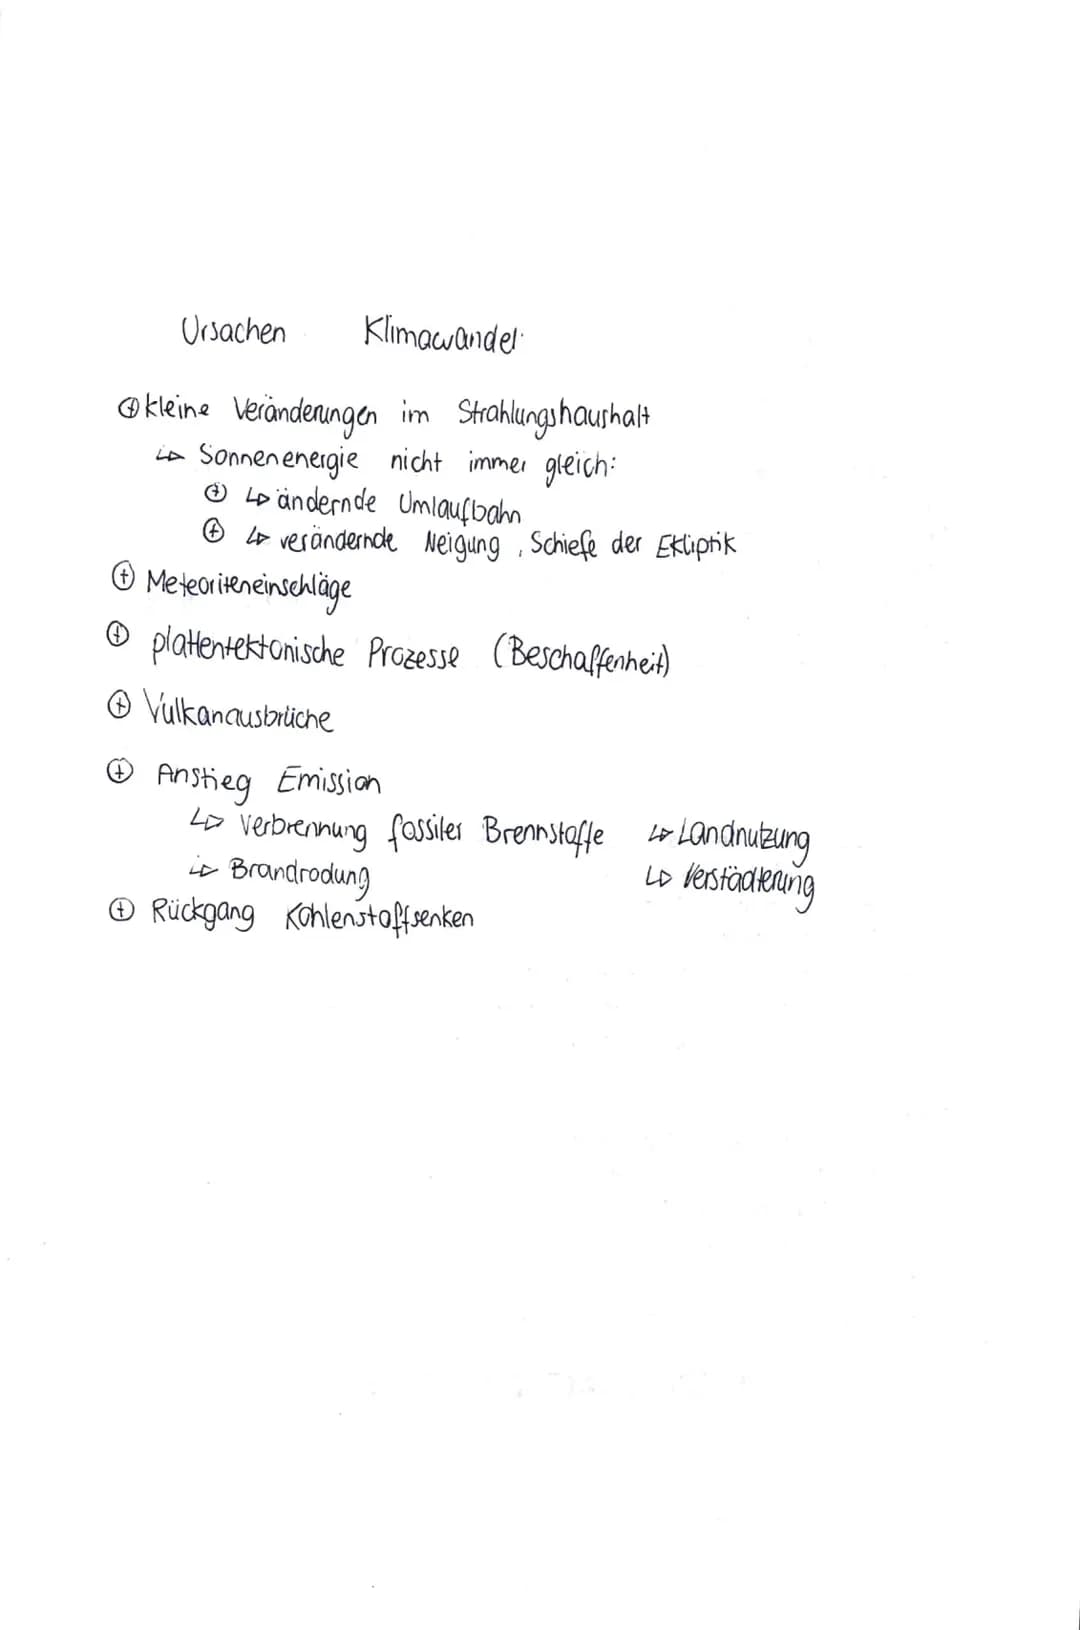 Ursachen Klimawandel
⊕ kleine Veränderungen im Strahlungshaushalt
↳ Sonnenenergie nicht immer gleich:
⊕ ↳ ändernde Umlaufbahn
⊕ ↳ verändernde Neigung, Schiefe der Ekliptik
⊕ Meteoriteneinschläge
⊕ plattentektonische Prozesse (Beschaffenheit)
⊕ Vulkanausbrüche
⊕ Anstieg Emission
↳ Verbrennung fossiler Brennstoffe ↳ Landnutzung
↳ Brandrodung ↳ Verstädterung
⊕ Rückgang Kohlenstoffsenken